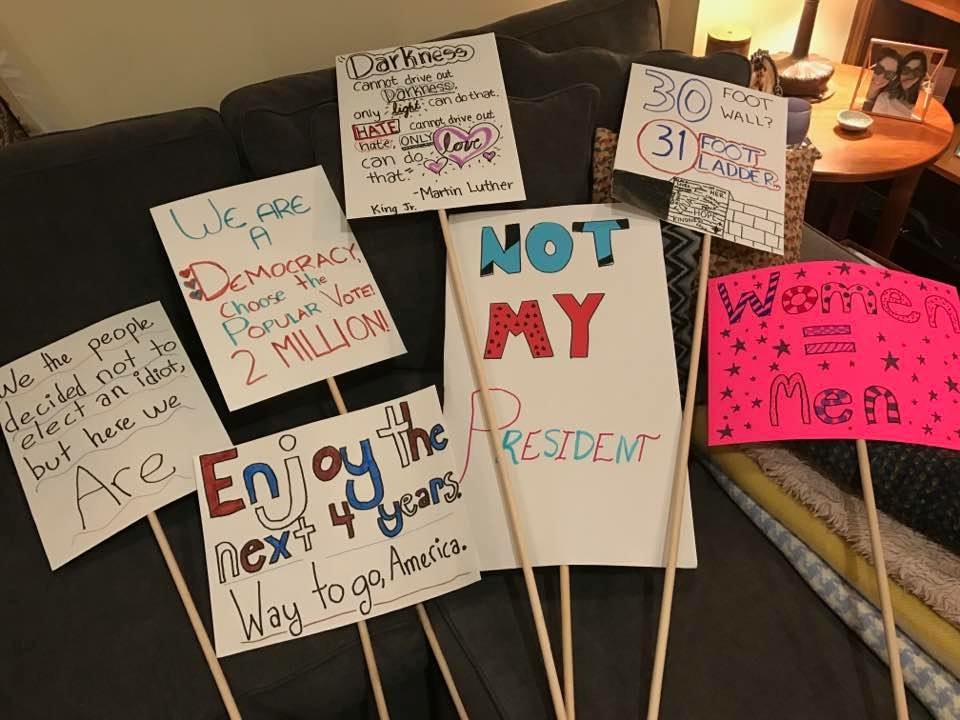 "Darkness
cannot drive out
Darkness,
only light can do that.
HATE cannot drive out
hate, ONLY love
can do
that."
-Martin Luther
King Jr.
30 FOOT
WALL?
31 FOOT
LADDER.
HOPE
WE ARE
A
DEMOCRACY,
Choose the
POPULAR VOTE!
2 MILLION!
NOT
MY
PRESIDENT
Women
=
Men
We the people
decided not to
elect an idiot,
but here we
Are
Enjoy the
next 4 years.
Way to go, America.